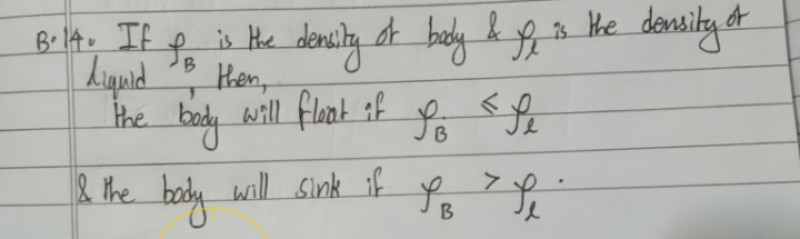 B.14. If ρ_B is the density of body & ρ_l is the density of
liquid, then,
the body will float if ρ_B ≤ ρ_l
& the body will sink if ρ_B > ρ_l.